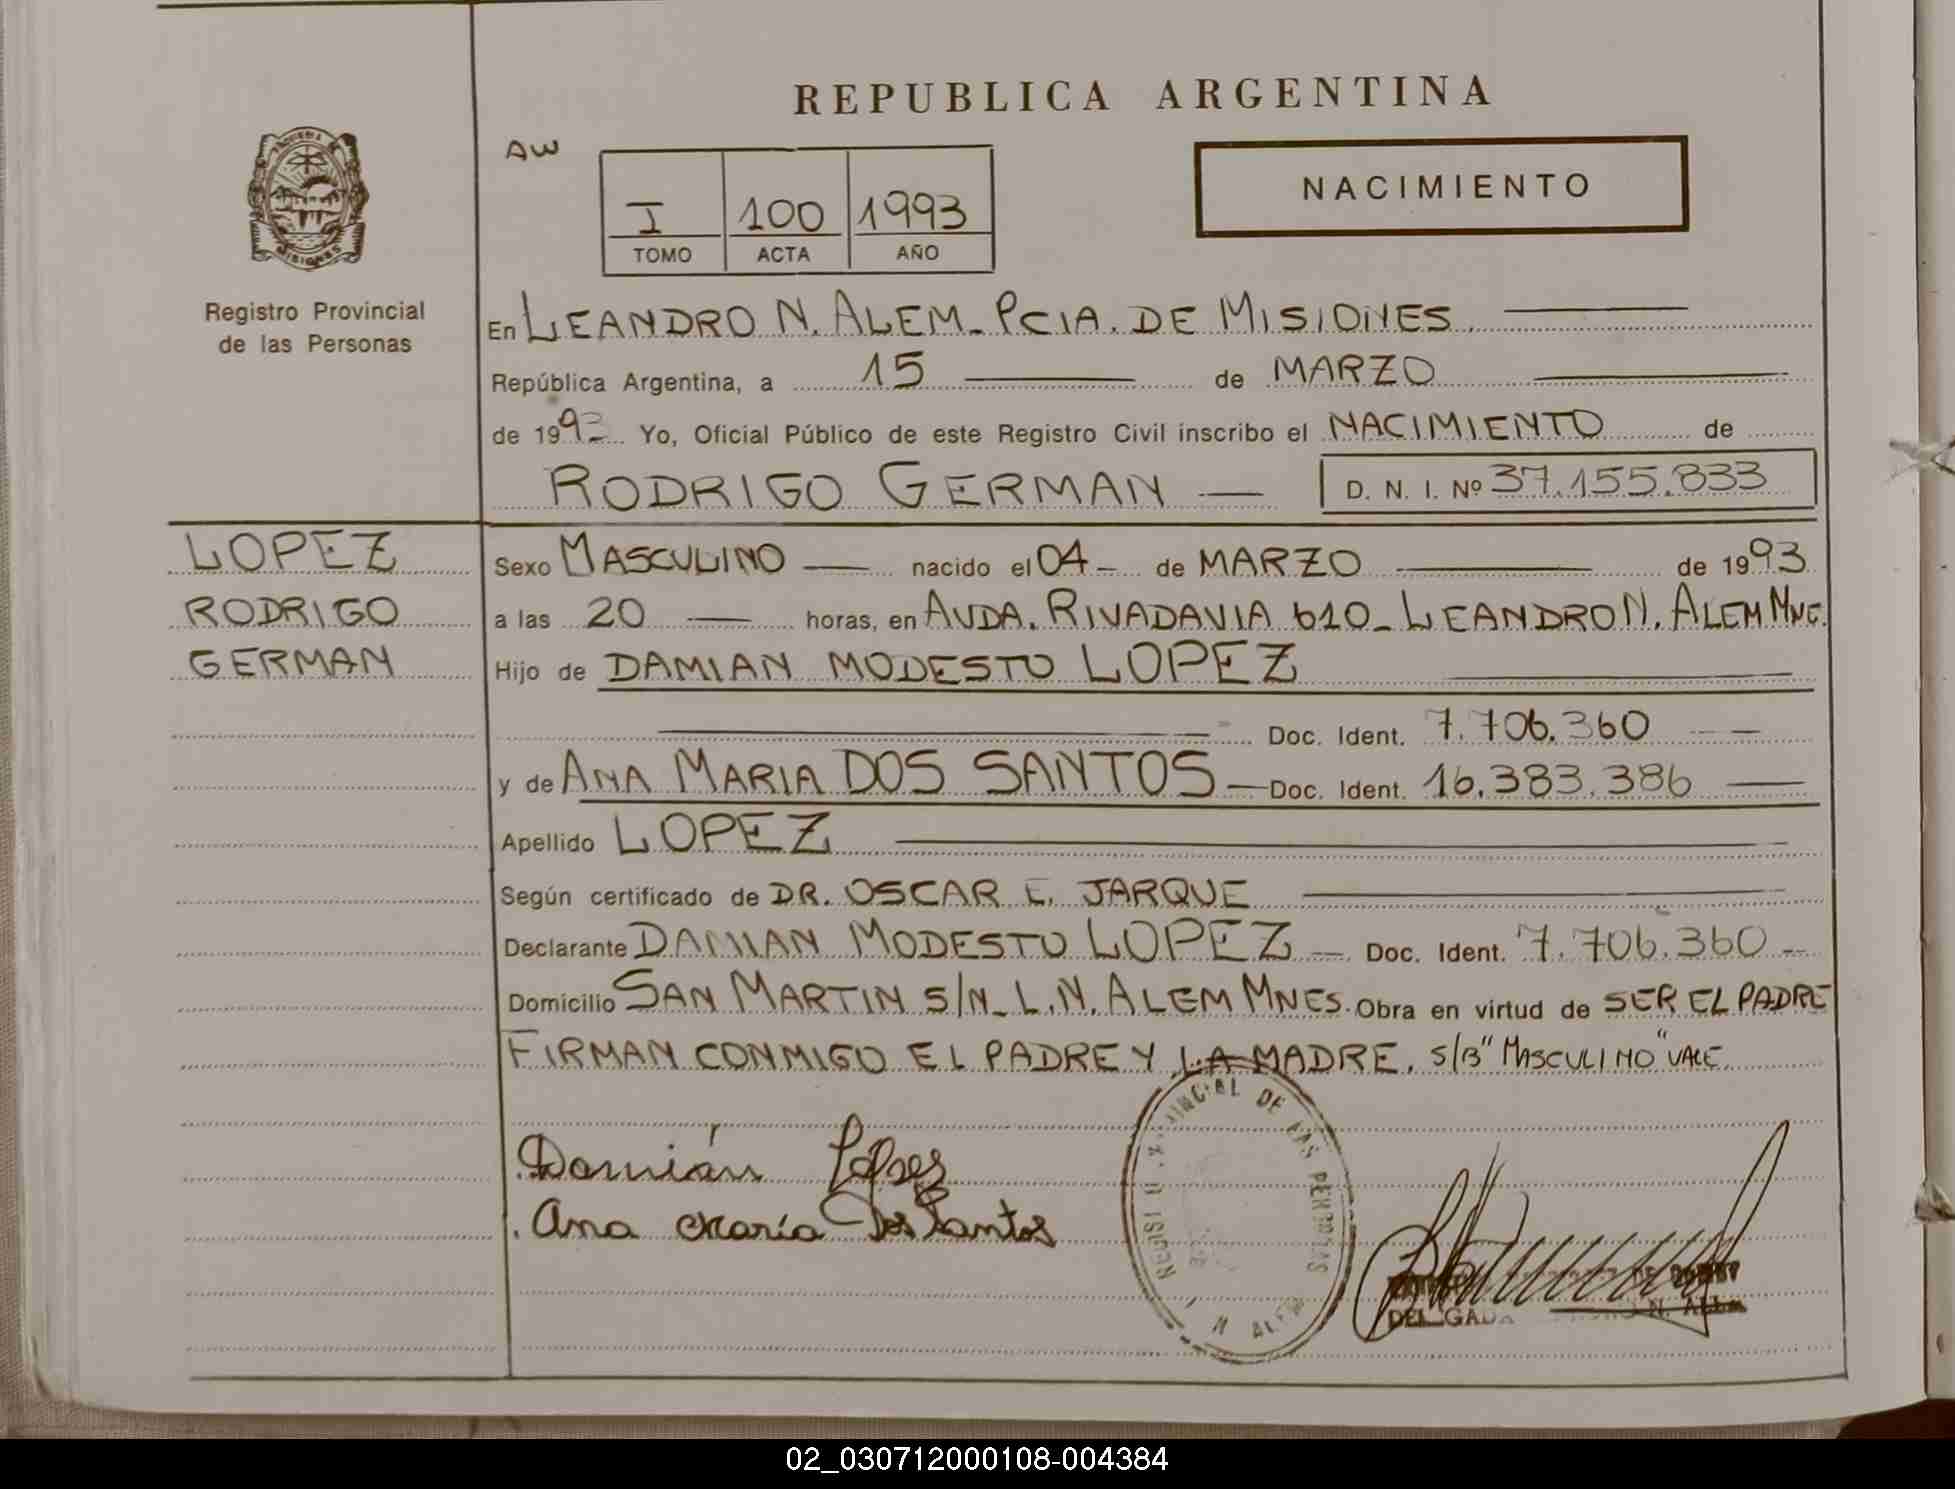 REPUBLICA ARGENTINA
AW
I 100 1993
TOMO ACTA AÑO
NACIMIENTO
MISIONES
Registro Provincial
de las Personas
En LEANDRO N. ALEM - PCIA. DE MISIONES.
República Argentina, a 15 de MARZO
de 1993 Yo, Oficial Público de este Registro Civil inscribo el NACIMIENTO de
RODRIGO GERMAN — D. N. I. Nº 37.155.833
LOPEZ
RODRIGO
GERMAN
Sexo MASCULINO — nacido el 04 - de MARZO — de 1993
a las 20 — horas, en AVDA. RIVADAVIA 610 - LEANDRO N. ALEM Mnes.
Hijo de DAMIAN MODESTO LOPEZ
Doc. Ident. 7.706.360 —
y de ANA MARIA DOS SANTOS — Doc. Ident. 16.383.386 —
Apellido LOPEZ
Según certificado de DR. OSCAR E. JARQUE
Declarante DAMIAN MODESTO LOPEZ — Doc. Ident. 7.706.360 —
Domicilio SAN MARTIN S/N - L.N. ALEM MNES. Obra en virtud de SER EL PADRE
FIRMAN CONMIGO EL PADRE Y LA MADRE. S/B "MASCULINO" VALE
Damián López
Ana María Dos Santos
DE LAS PERSONAS
N ALEM
N. ALEM
02_030712000108-004384